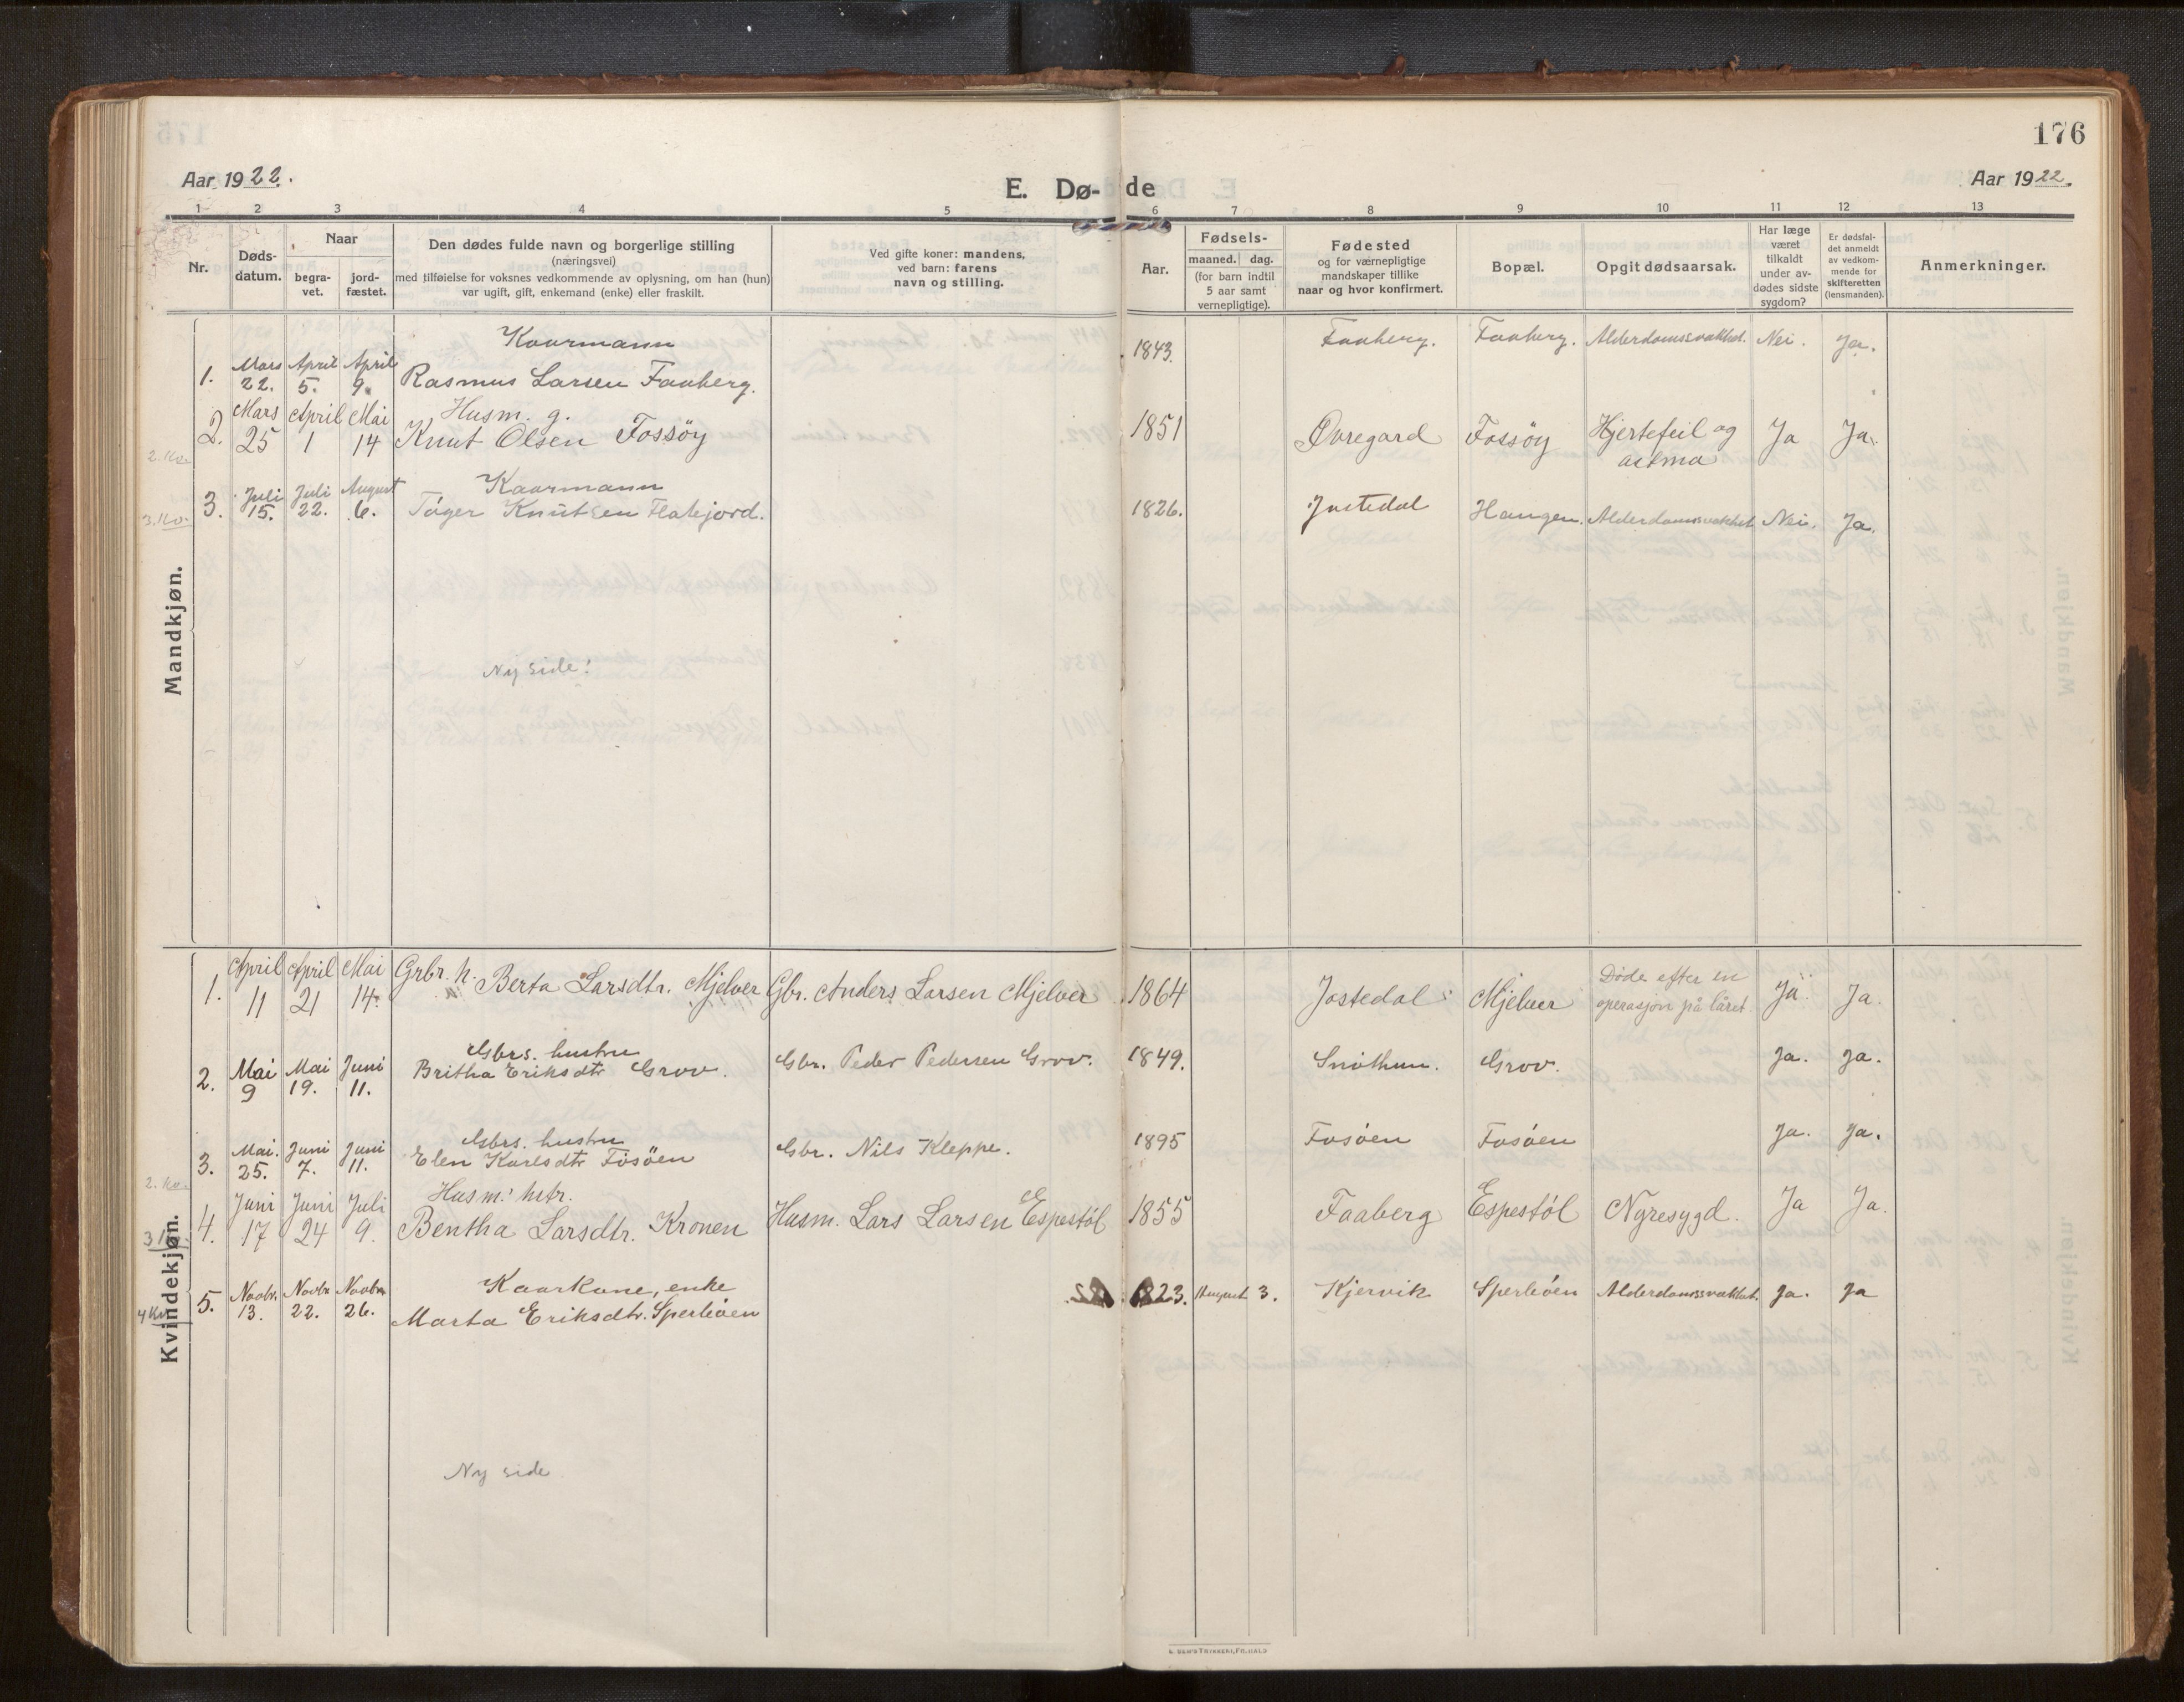 176
Aar 1922.
E. Dø- de
Aar 1922.
1 2 3 4 5 6 7 8 9 10 11 12 13
Nr.
Døds-
datum.
Naar
begra-
vet.
jord-
fæstet.
Den dødes fulde navn og borgerlige stilling
(næringsvei)
med tilføielse for voksnes vedkommende av oplysning, om han (hun)
var ugift, gift, enkemand (enke) eller fraskilt.
Ved gifte koner: mandens,
ved barn: farens
navn og stilling.
Aar.
Fødsels-
maaned. dag.
(for barn indtil
5 aar samt
vernepligtige).
Fødested
og for værnepligtige
mandskaper tillike
naar og hvor konfirmert.
Bopæl.
Opgit dødsaarsak.
Har læge
været
tilkaldt
under av-
dødes sidste
sygdom?
Er dødsfal-
det anmeldt
av vedkom-
mende for
skifteretten
(lensmanden).
Anmerkninger.
Mandkjøn.
Kaarmann
1. Mars 22. April 5. April 9. Rasmus Larsen Faaberg. 1843. Faaberg. Faaberg. Alderdomssvakhet. Nei. Ja.
Husm. g.
2. Mars 25 April 1 Mai 14 Knut Olsen Fossöy 1851 Øvregard Fossöy Hjertefeil og astma Ja Ja.
2. Kv.
Kaarmann
3. Juli 15. Juli 22. August 6. Töger Knutsen Flatejord. 1826. Jostedal Haugen. Alderdomssvakhet Nei. Ja.
3. Kv.
Ny side!
Kvindekjøn.
1. April 11 April 21 Mai 14. Grbr. h. Berta Larsdtr. Mjelver Gbr. Anders Larsen Mjelver 1864 Jostedal Mjelver Döde efter en operasjon på låret Ja. Ja.
Gbrs. hustru
2. Mai 9 Mai 19. Juni 11. Britha Eriksdtr Grov. Gbr. Peder Pedersen Grov. 1849. Snöthun. Grov. Ja. Ja.
Gbrs. hustru
3. Mai. 25. Juni 7. Juni 11. Elen Karlsdtr Fosöen Gbr. Nils Kleppe. 1895 Fosöen Fosöen Ja. Ja.
2. Kv.
Husm. hstr.
4. Juni 17 Juni 24 Juli 9. Bentha Larsdtr. Kronen Husm. Lars Larsen Espestöl 1855 Faaberg Espestöl Nyresygd. Ja Ja.
3 Kv.
Kaarkone, enke
5. Novbr. 13. Novbr. 22. Novbr. 26. Marta Eriksdtr. Sperleöen 1823. August 3. Kjervik Sperleöen Alderdomssvakhet. Ja. Ja
4 Kv.
Ny side